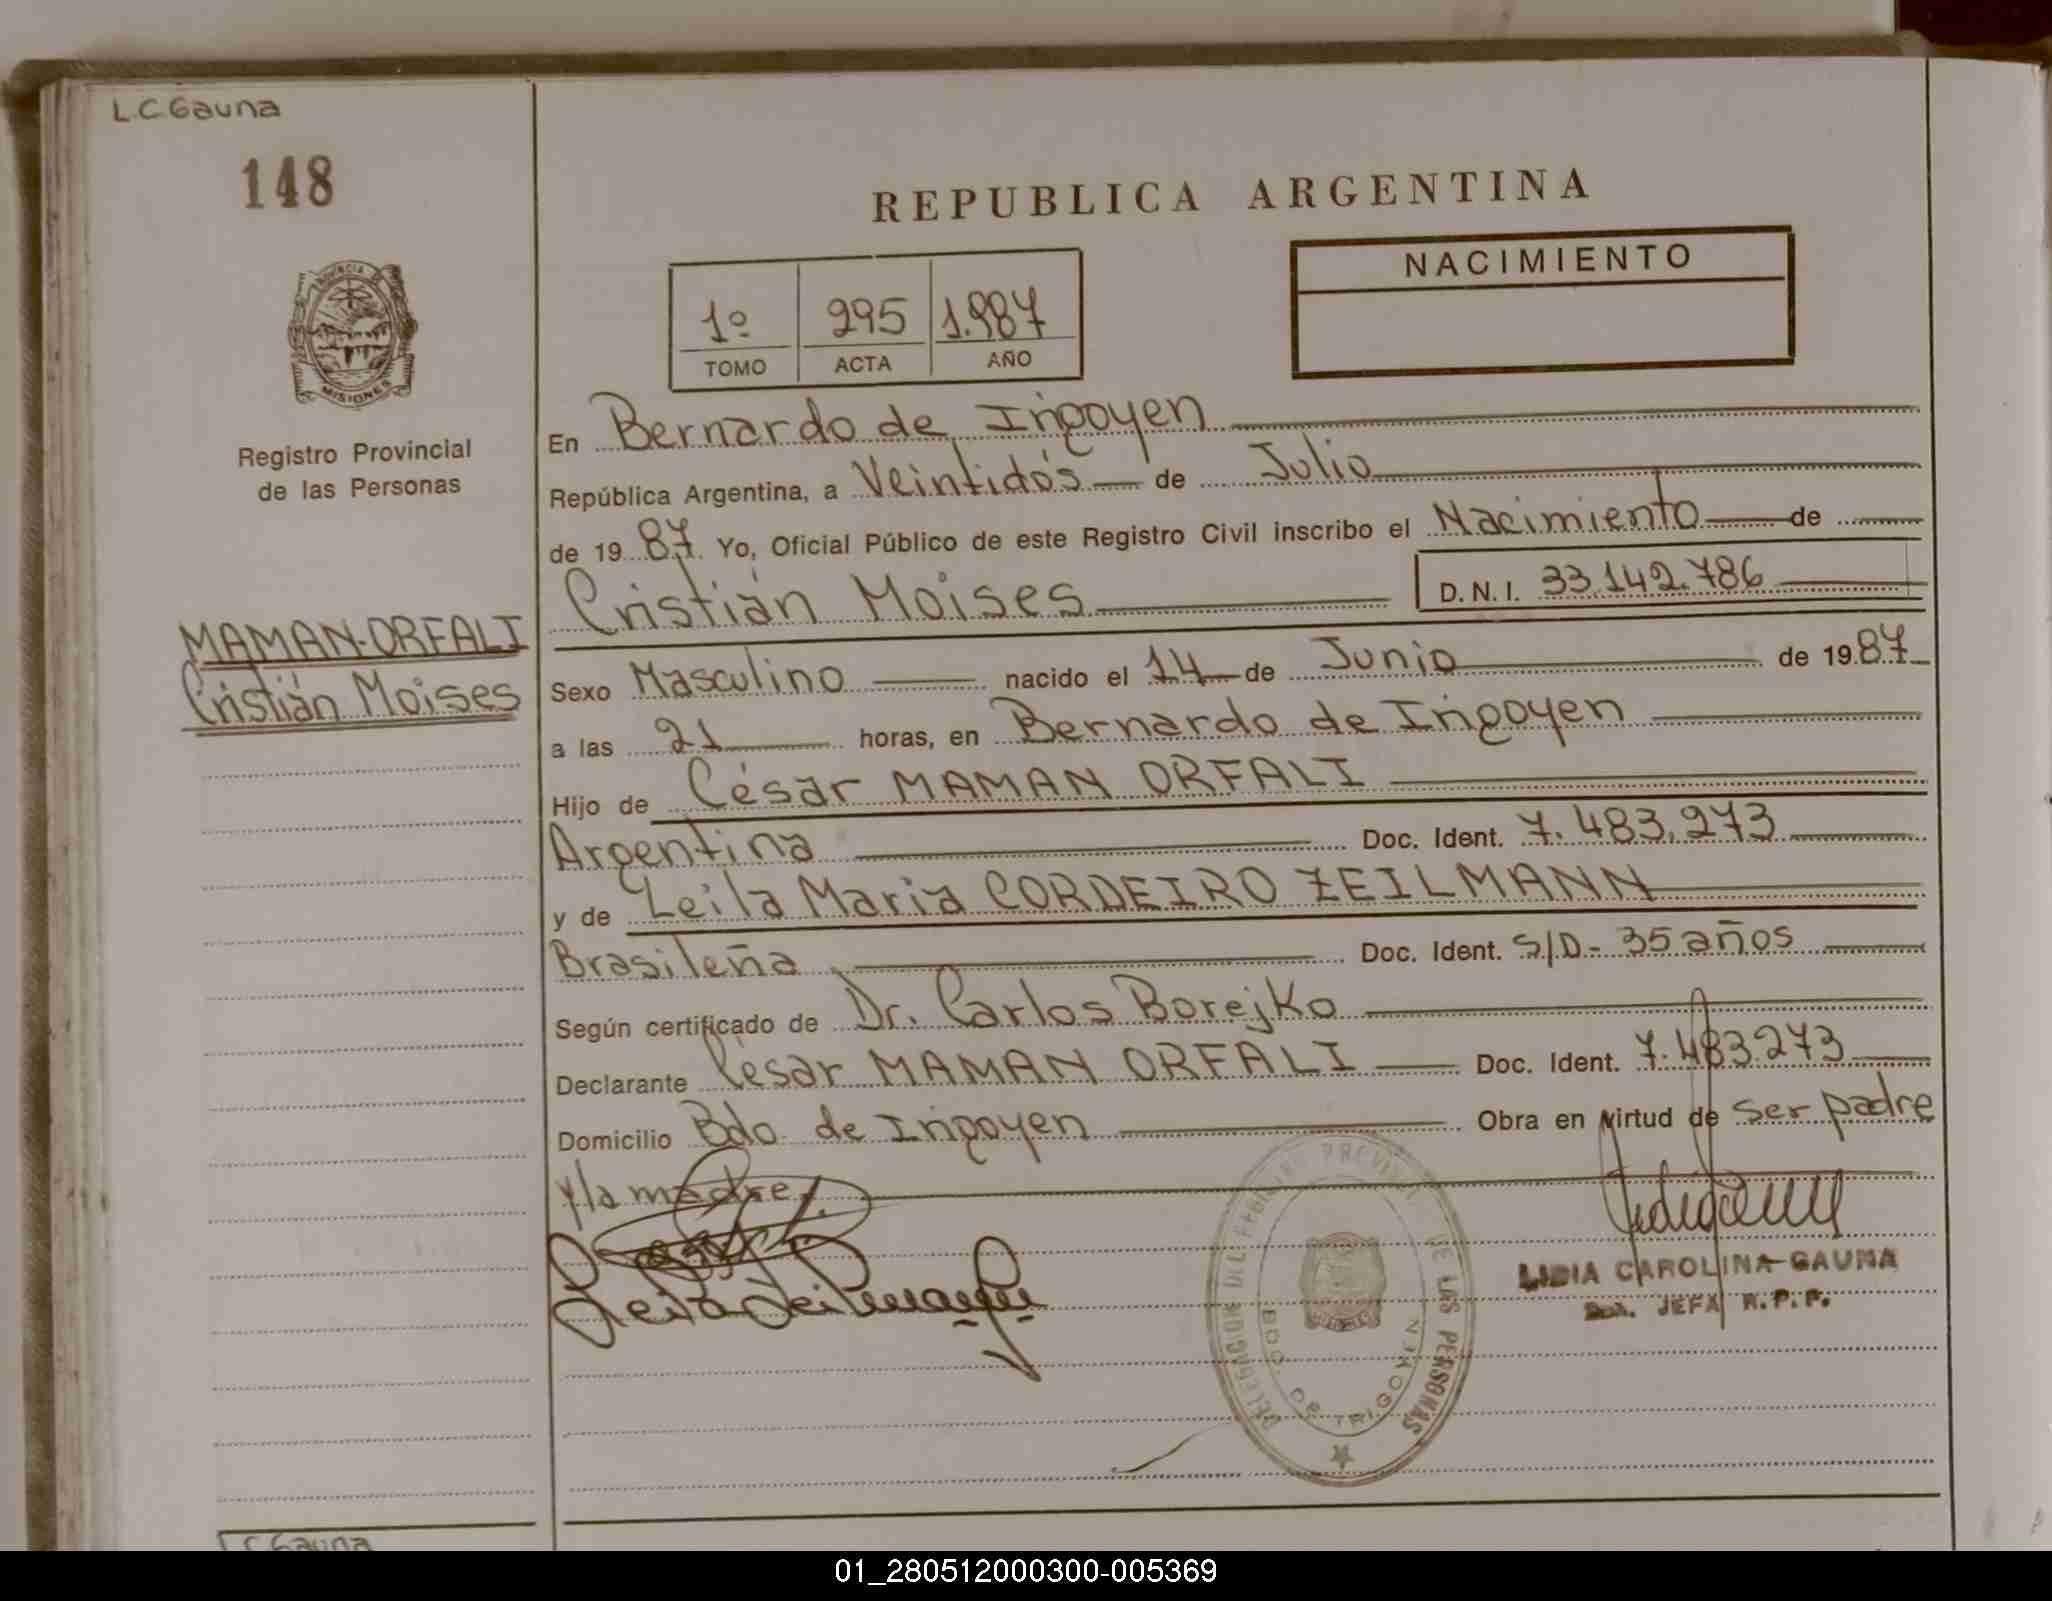 L.C. Gauna
148
REPUBLICA ARGENTINA
NACIMIENTO
1º 295 1.987
TOMO ACTA AÑO
PROVINCIA DE
MISIONES
Registro Provincial
de las Personas
MAMAN-ORFALI
Cristián Moises
En Bernardo de Irigoyen
República Argentina, a Veintidós de Julio
de 19 87. Yo, Oficial Público de este Registro Civil inscribo el Nacimiento de
Cristián Moises D.N.I. 33.142.786
Sexo Masculino nacido el 14 de Junio de 19 87
a las 21 horas, en Bernardo de Irigoyen
Hijo de César MAMAN ORFALI
Argentina Doc. Ident. 7.483.273
y de Leila Maria CORDEIRO ZEILMANN
Brasileña Doc. Ident. S/D- 35 años
Según certificado de Dr. Carlos Borejko
Declarante César MAMAN ORFALI Doc. Ident. 7.483.273
Domicilio Bdo. de Irigoyen Obra en virtud de ser padre
y la madre.
LIDIA CAROLINA GAUNA
JEFA R.P.P.
DELEGACION DEL REGISTRO PROVINCIAL DE LAS PERSONAS
BDO. DE IRIGOYEN
L.C. Gauna
01_280512000300-005369